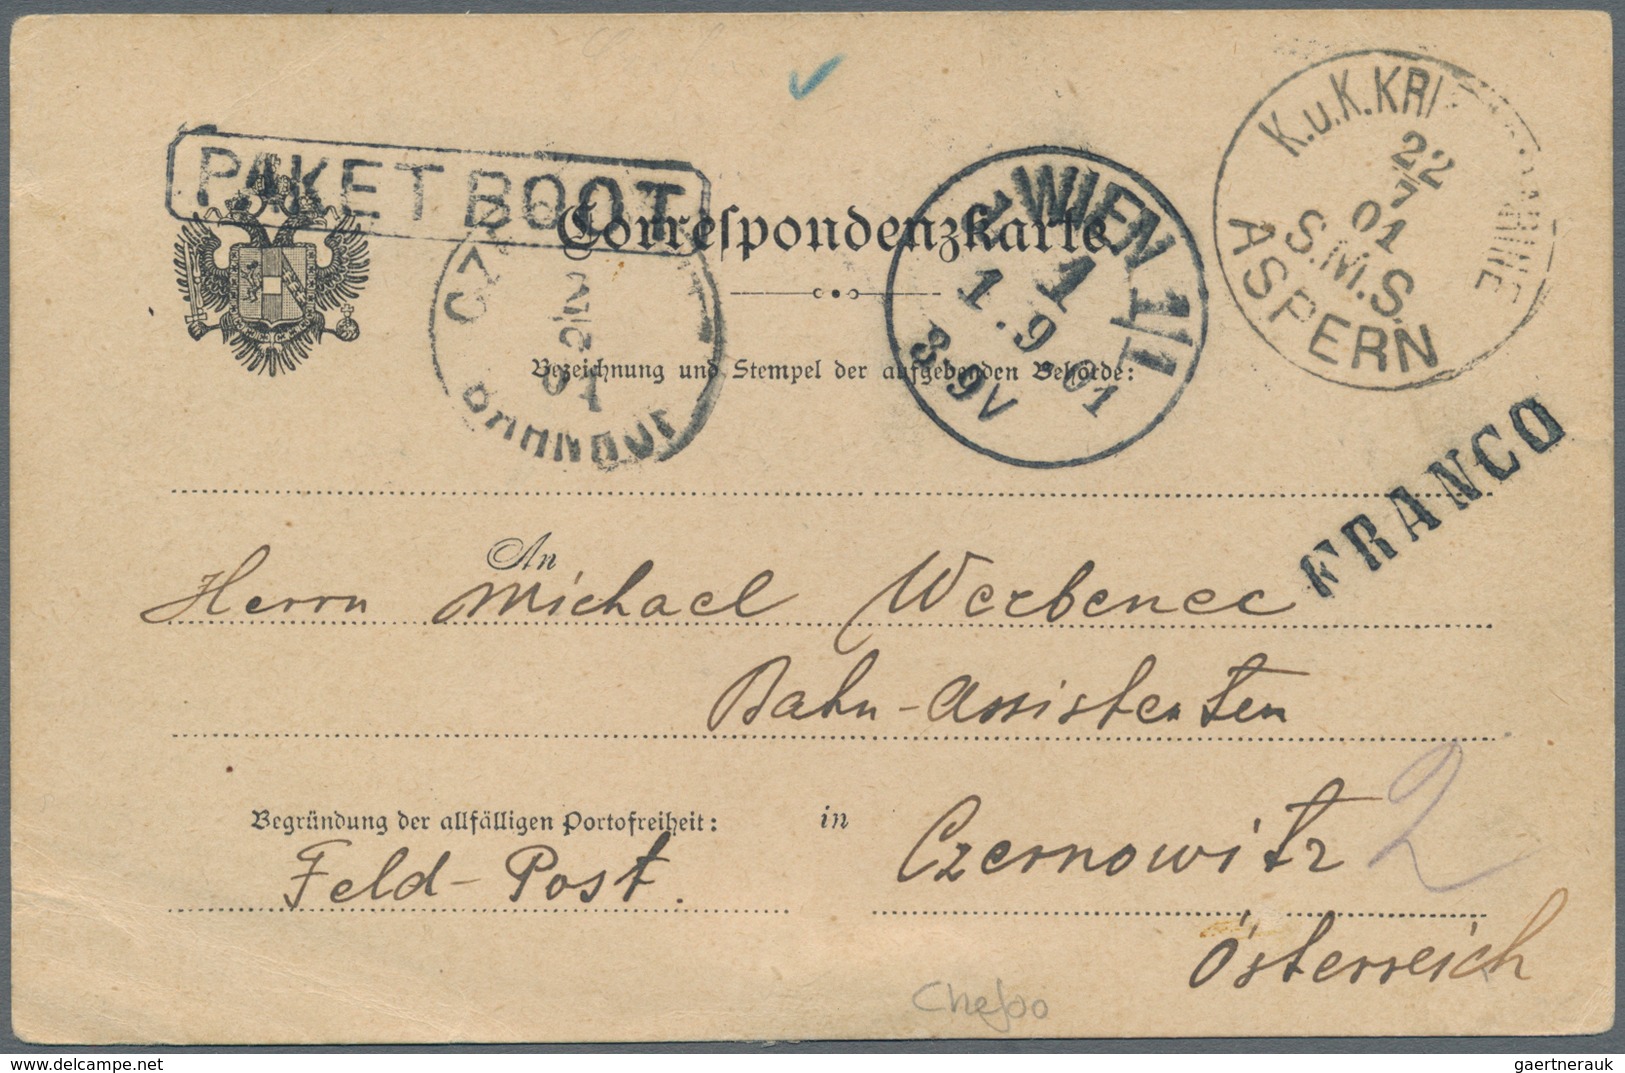 PAKETBOOT
Correspondenzkarte.
K.u.K.KRI
22
7
01
S.M.S.
ASPERN
WIEN 1/1
1
1.9.01
8-9V
CZ
2
01
Bezeichnung und Stempel der aufgebenden Behörde:
FRANCO
An
Herrn Michael Werbenec
Bahn-Assistenten
Begründung der allfälligen Portofreiheit: in Czernowitz 2
Feld-Post.
Österreich
Chefoo
gaertnerauk